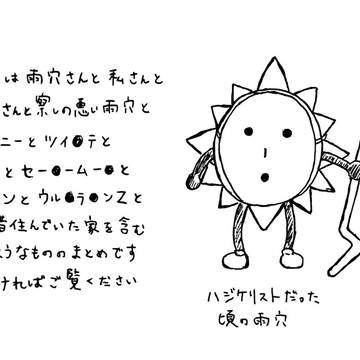 は 雨穴さんと 私さんと
さんと察しの悪い雨穴と
ニーとツイ●テと
とセー●ームー●と
ンとウル●ラ●ンスと
昔住んでいた家を含む
ようなもののまとめです
ければご覧ください
ハジケリストだった
頃の雨穴